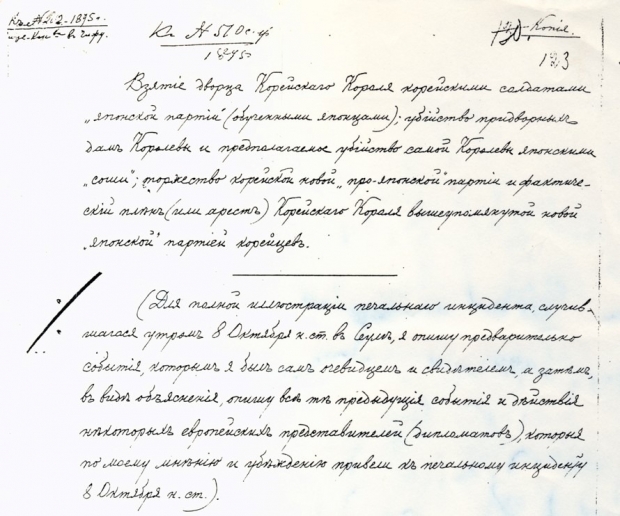 Къ № 570 с. г.
1895
Копія.
123
Взятіе дворца Корейскаго Короля корейскими солдатами
„японской партіи" (обученными японцами); убійство придворныхъ
дамъ Королевы и предполагаемое убійство самой Королевы японскими
„соши"; торжество корейской новой „про-японской" партіи и фактиче-
скій плѣнъ (или арестъ) Корейскаго Короля вышеупомянутой новой
„японской" партіей корейцевъ.
(Для полной иллюстраціи печальнаго инцидента, случив-
шагося утромъ 8 Октября н. ст. въ Сеулѣ, я опишу предварительно
событія, которымъ я былъ самъ очевидцемъ и свидѣтелемъ, а затѣмъ,
въ видѣ объясненія, опишу всѣ тѣ предыдущія событія и дѣйствія
нѣкоторыхъ европейскихъ представителей (дипломатовъ), которыя
по моему мнѣнію и убѣжденію привели къ печальному инциденту
8 Октября н. ст.).